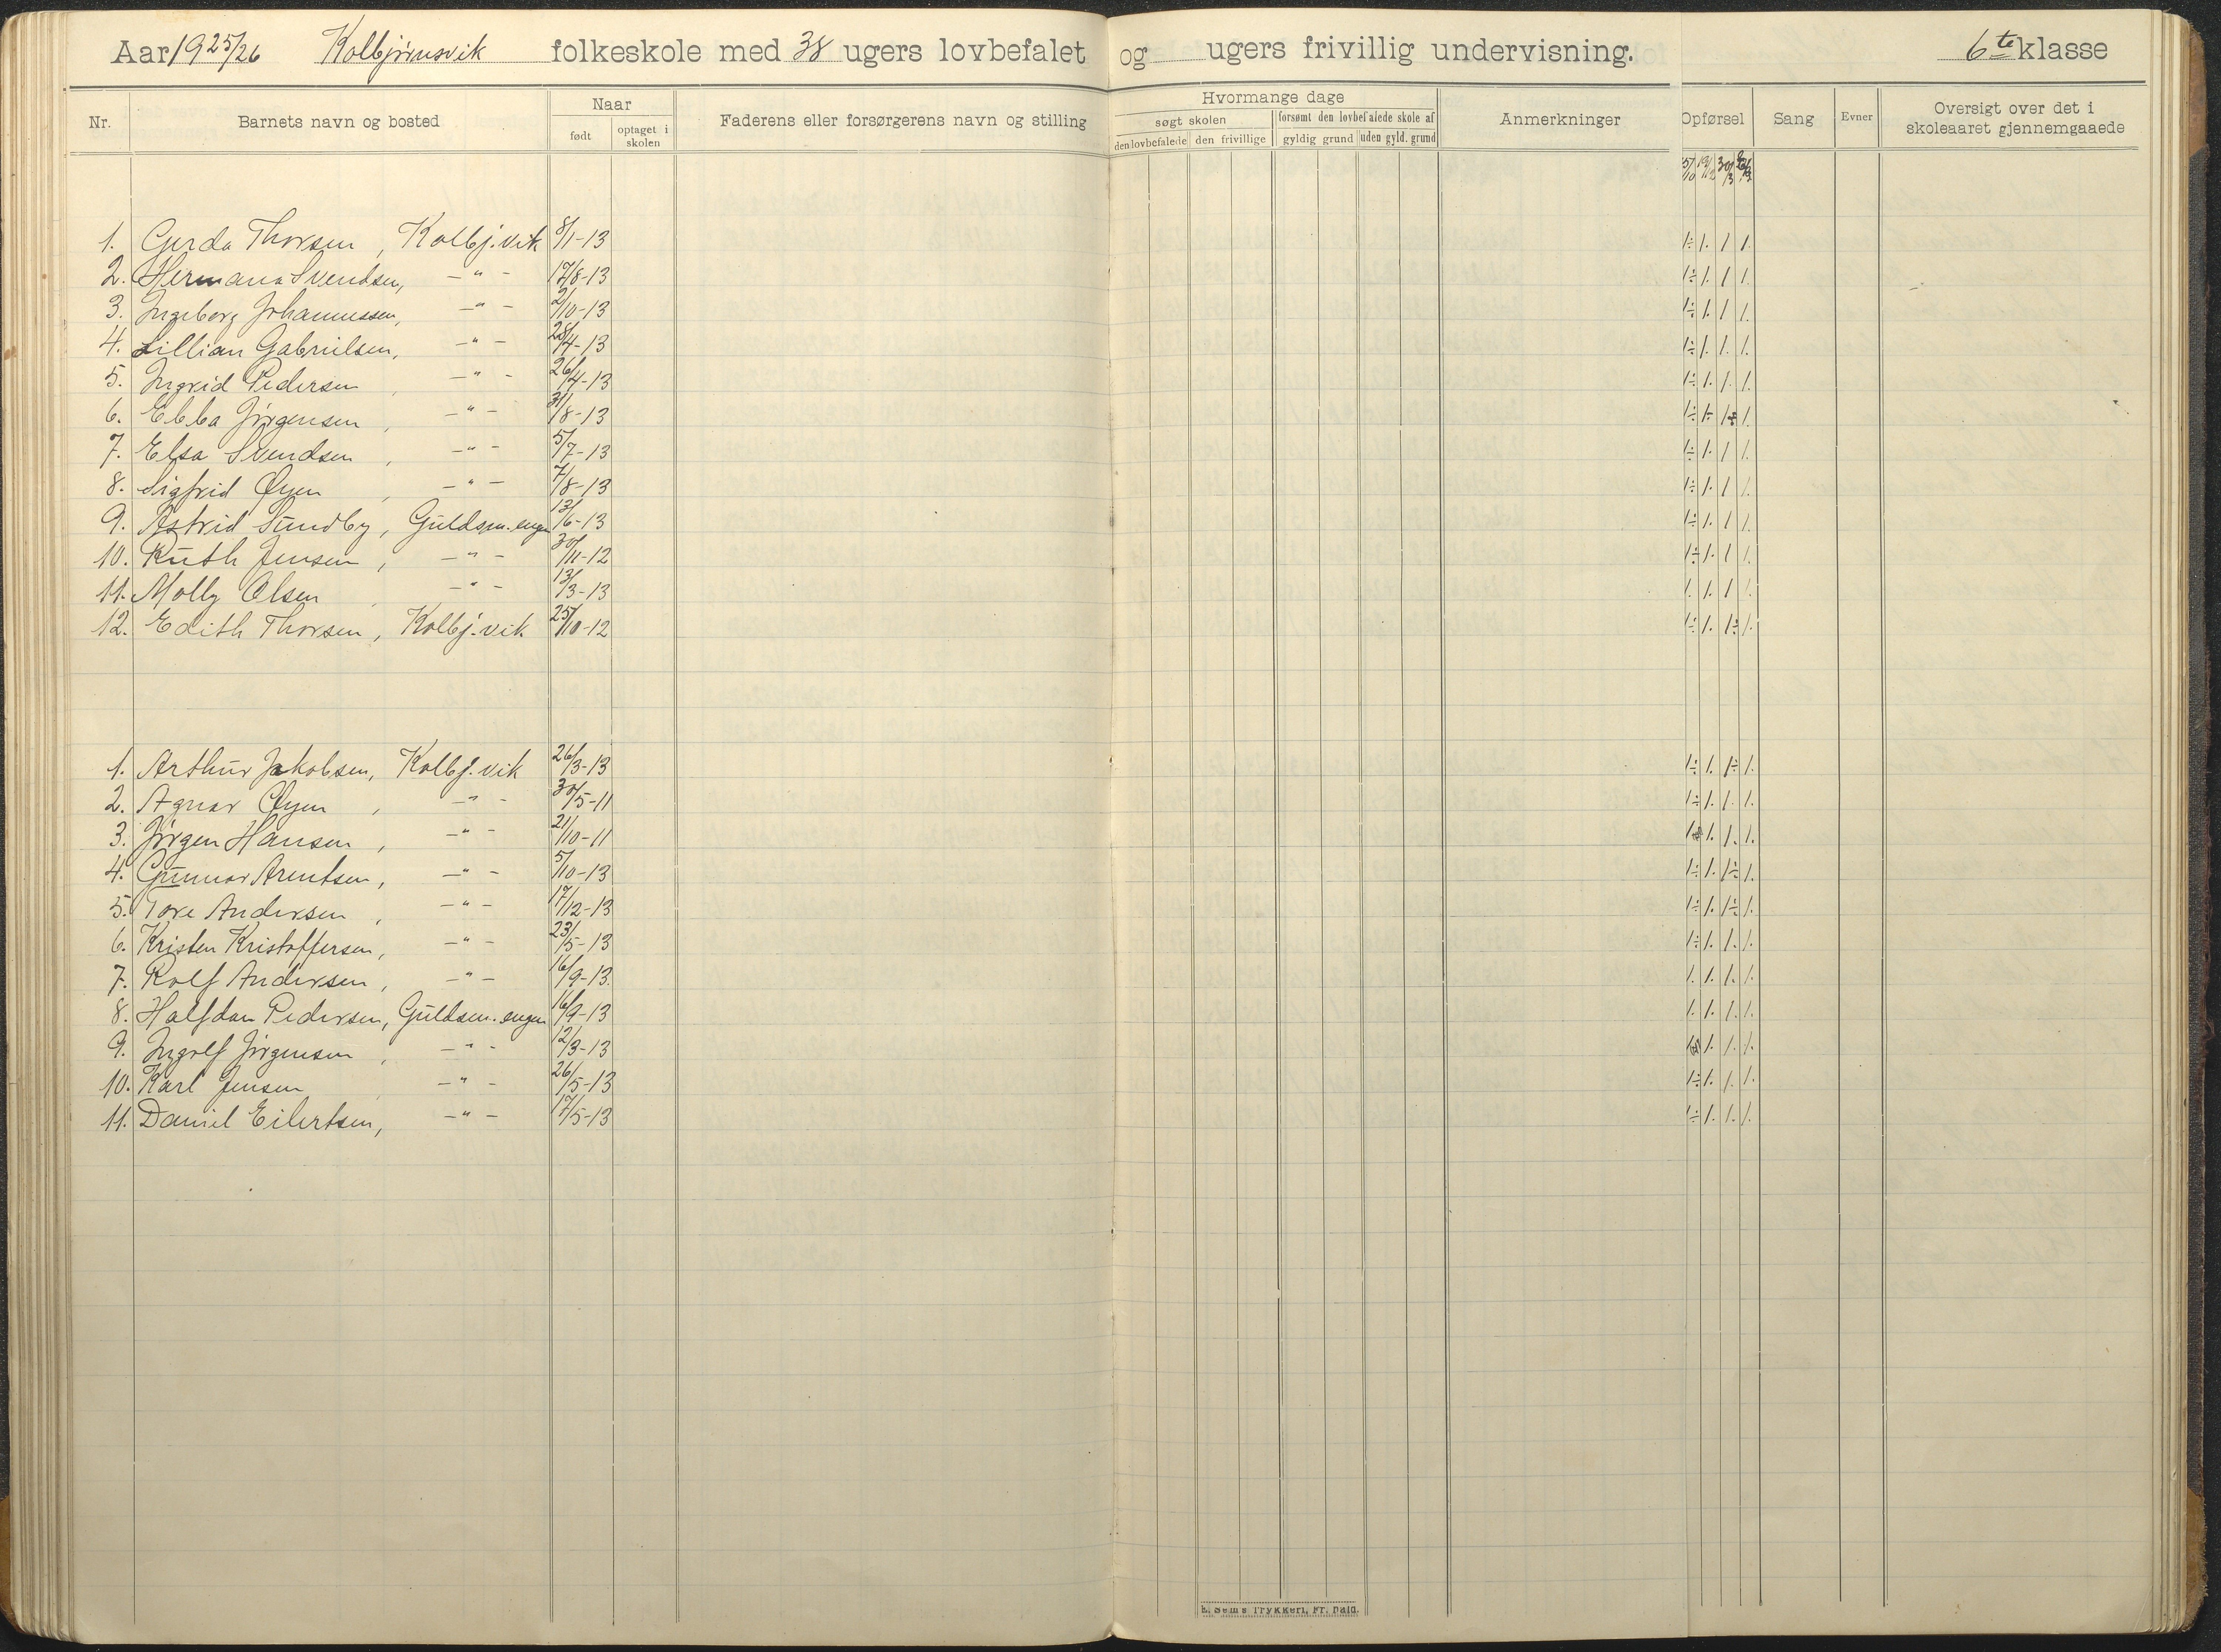 Aar 1925/26 Kolbjørnsvik folkeskole med 38 ugers lovbefalet og ugers frivillig undervisning. 6te klasse
Nr. Barnets navn og bosted Naar Faderens eller forsørgerens navn og stilling Hvormange dage Anmerkninger Opførsel Sang Evner Oversigt over det i skoleaaret gjennemgaaede
født optaget i skolen søgt skolen forsømt den lovbefalede skole af
den lovbefalede den frivillige gyldig grund uden gyld. grund
5/10 19/12 30/3
1. Gerda Thorsen, Kolbj.vik 8/1-13 1÷ 1. 1 1.
2. Hermana Svendsen, -"- 17/8-13 1÷ 1. 1 1.
3. Ingeborg Johannessen, -"- 2/10-13 1÷ 1. 1 1.
4. Lillian Gabrielsen, -"- 28/4-13 1÷ 1. 1. 1.
5. Ingrid Pedersen, -"- 26/4-13 1÷ 1. 1. 1.
6. Ebba Jörgensen, -"- 31/8-13 1÷ 1÷ 1÷ 1.
7. Elsa Svendsen, -"- 5/7-13 1÷ 1. 1 1.
8. Sigfrid Øyen, -"- 7/8-13 1÷ 1. 1 1.
9. Astrid Sundby, Guldsm.engen 13/6-13 1÷ 1. 1 1.
10. Ruth Jensen, -"- 30/11-12 1÷ 1. 1 1.
11. Molly Olsen, -"- 13/3-13 1. 1. 1 1.
12. Edith Thorsen, Kolbj.vik 25/10-12 1÷ 1. 1÷ 1.
1. Arthur Jakobsen, Kolbj.vik 26/3-13 1÷ 1. 1÷ 1.
2. Agnar Øyen, -"- 30/5-11 1÷ 1. 1. 1.
3. Jörgen Hansen, -"- 21/10-11 1 1. 1. 1.
4. Gunnar Arentsen, -"- 5/10-13 1÷ 1. 1÷ 1.
5. Tore Andersen, -"- 17/12-13 1÷ 1. 1÷ 1.
6. Kristen Kristoffersen, -"- 23/5-13 1÷ 1. 1. 1.
7. Rolf Andersen, -"- 16/9-13. 1. 1. 1. 1.
8. Halfdan Pedersen, Guldsm.engen 16/9-13 1. 1. 1. 1.
9. Ingolf Jörgensen, -"- 12/3-13 1. 1. 1.
10. Karl Jensen -"- 26/5-13 1÷ 1. 1. 1.
11. Daniel Eilertsen, -"- 17/5-13 1÷ 1. 1. 1.
E. Sem's Trykkeri, Fr.hald.